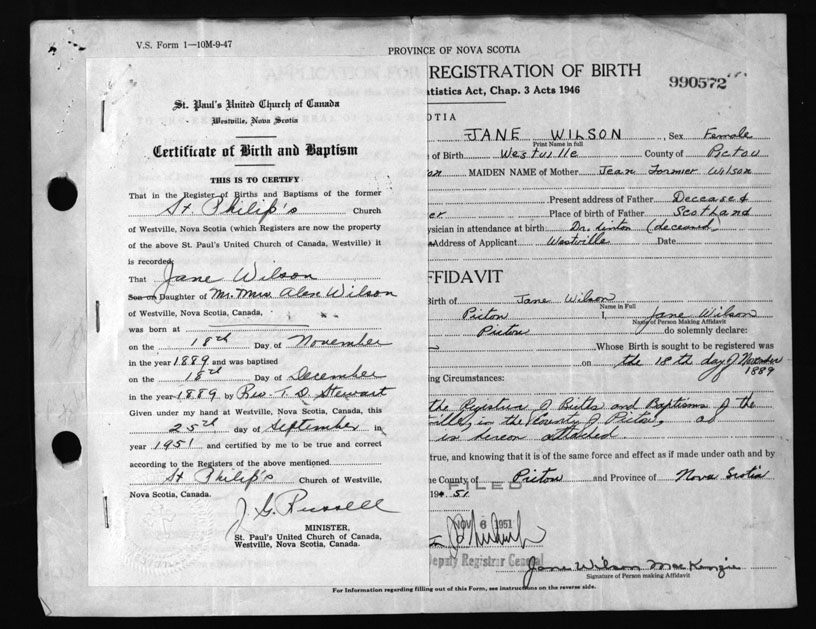 V.S. Form 1—10M-9-47
PROVINCE OF NOVA SCOTIA
REGISTRATION OF BIRTH
990572
atistics Act, Chap. 3 Acts 1946
St. Paul's United Church of Canada
Westville, Nova Scotia
Certificate of Birth and Baptism
THIS IS TO CERTIFY
That in the Register of Births and Baptisms of the former
St. Philip's Church
of Westville, Nova Scotia (which Registers are now the property
of the above St. Paul's United Church of Canada, Westville) it
is recorded:
That Jane Wilson
Son or Daughter of Mr. Mrs. Alex Wilson
of Westville, Nova Scotia, Canada,
was born at
on the 18th Day of November
in the year 1889 and was baptised
on the 18th Day of December
in the year 1889 by Rev. T. D. Stewart
Given under my hand at Westville, Nova Scotia, Canada, this
25th day of September in
year 1951 and certified by me to be true and correct
according to the Registers of the above mentioned
St Philip's Church of Westville,
Nova Scotia, Canada.
J. G. Russell
MINISTER,
St. Paul's United Church of Canada,
Westville, Nova Scotia, Canada.
OTIA
JANE WILSON, Sex Female
Print Name in full
of Birth Westville County of Pictou
on MAIDEN NAME of Mother Jean Wilson
Present address of Father Deceased
er Place of birth of Father Scotland
ysician in attendance at birth Dr. (deceased)
Address of Applicant Westville Date
FFIDAVIT
Birth of Jane Wilson
Name in Full
Pictou I, Jane Wilson
Name of Person Making Affidavit
Pictou do solemnly declare:
Whose Birth is sought to be registered was
on the 18th day of November
1889
ng Circumstances:
the Registrar of Births and Baptisms of the
ville, in the County of Pictou, as
is hereon attached
true, and knowing that it is of the same force and effect as if made under oath and by
he County of Pictou and Province of Nova Scotia
FILED
51
NOV 6 1951
Deputy Registrar General
Jane Wilson MacKenzie
Signature of Person making Affidavit
For Information regarding filling out of this Form, see instructions on the reverse side.